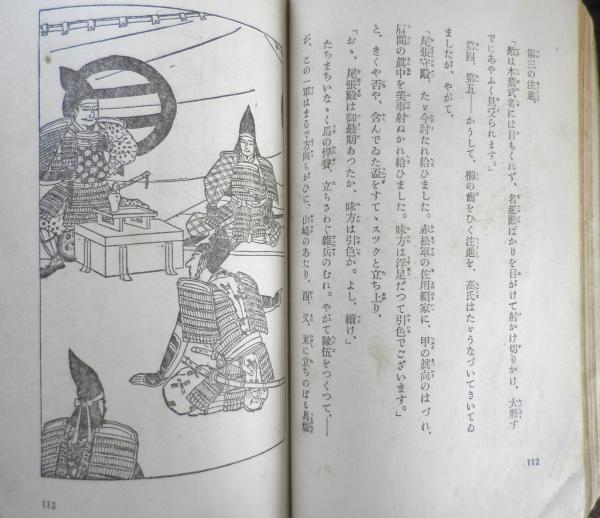 第三の注進、
「敵は木葉武者には目もくれず、名越殿ばかりを目がけて射かけ切りかけ、大將す
でにあやふく見受られます。」
第四、第五――かうして、櫛の歯をひく注進を、高氏はたゞうなづいてきいてゐ
ましたが、やがて、
「尾張守殿、たゞ今討たれ給ひました。赤松軍の佐用範家に、甲の眞向のはづれ、
眉間の眞中を美事射ぬかれ給ひました。味方は浮足だつて引色でございます。」
と、きくや否や、含んでゐた盃をすてゝスツクと立ち上り、
「おゝ、尾張殿は御最期あつたか、味方は引色か。よし、續け。」
たちまちいなゝく馬の
立ちさわぐ雜兵のむれ。やがて隊伍をつくつて、――
が、この一軍はまるで方向ちがひに、山崎のあたり、酉、又、東に立ちのぼる馬煙
112
113